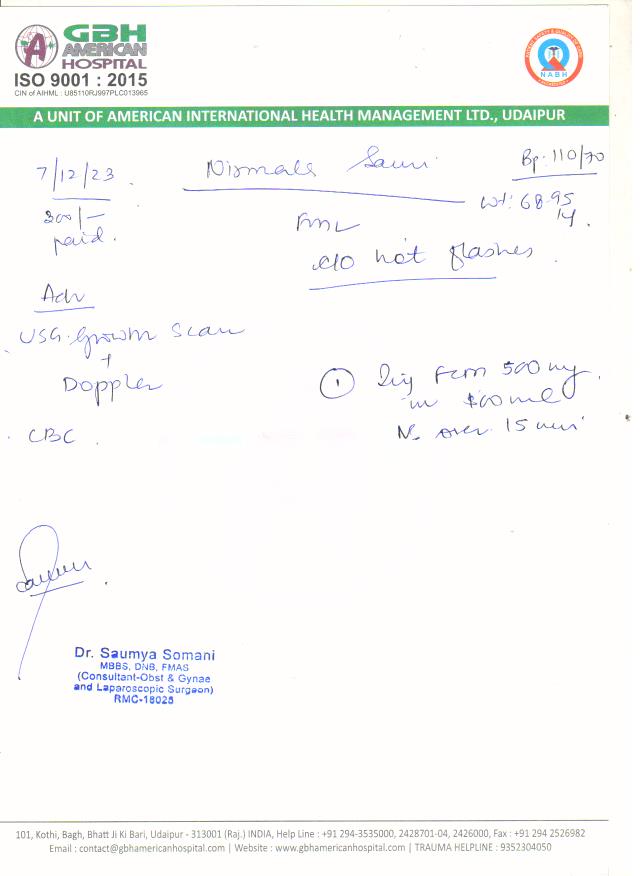 GBH
AMERICAN
HOSPITAL
ISO 9001 : 2015
CIN of AIHML : U85110RJ997PLC013965
NABH
A UNIT OF AMERICAN INTERNATIONAL HEALTH MANAGEMENT LTD., UDAIPUR
7/12/23
Bp. 110/70
300/-
paid.
wt: 68.95
c/o hot flashes
Adv
USG. Growth Scan
+
Doppler
CBC
① Inj FCM 500 mg
in
NS over 15 min
Dr. Saumya Somani
MBBS, DNB, FMAS
(Consultant-Obst & Gynae
and Laparoscopic Surgeon)
RMC-18028
101, Kothi, Bagh, Bhatt Ji Ki Bari, Udaipur - 313001 (Raj.) INDIA, Help Line : +91 294-3535000, 2428701-04, 2426000, Fax : +91 294 2526982
Email : contact@gbhamericanhospital.com | Website : www.gbhamericanhospital.com | TRAUMA HELPLINE : 9352304050